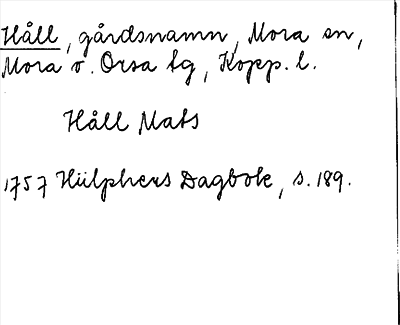 Håll, gårdsnamn, Mora sn,
Mora o. Orsa tg, Kopp. l.
Håll Mats
1757 Hülphers Dagbok, s. 189.